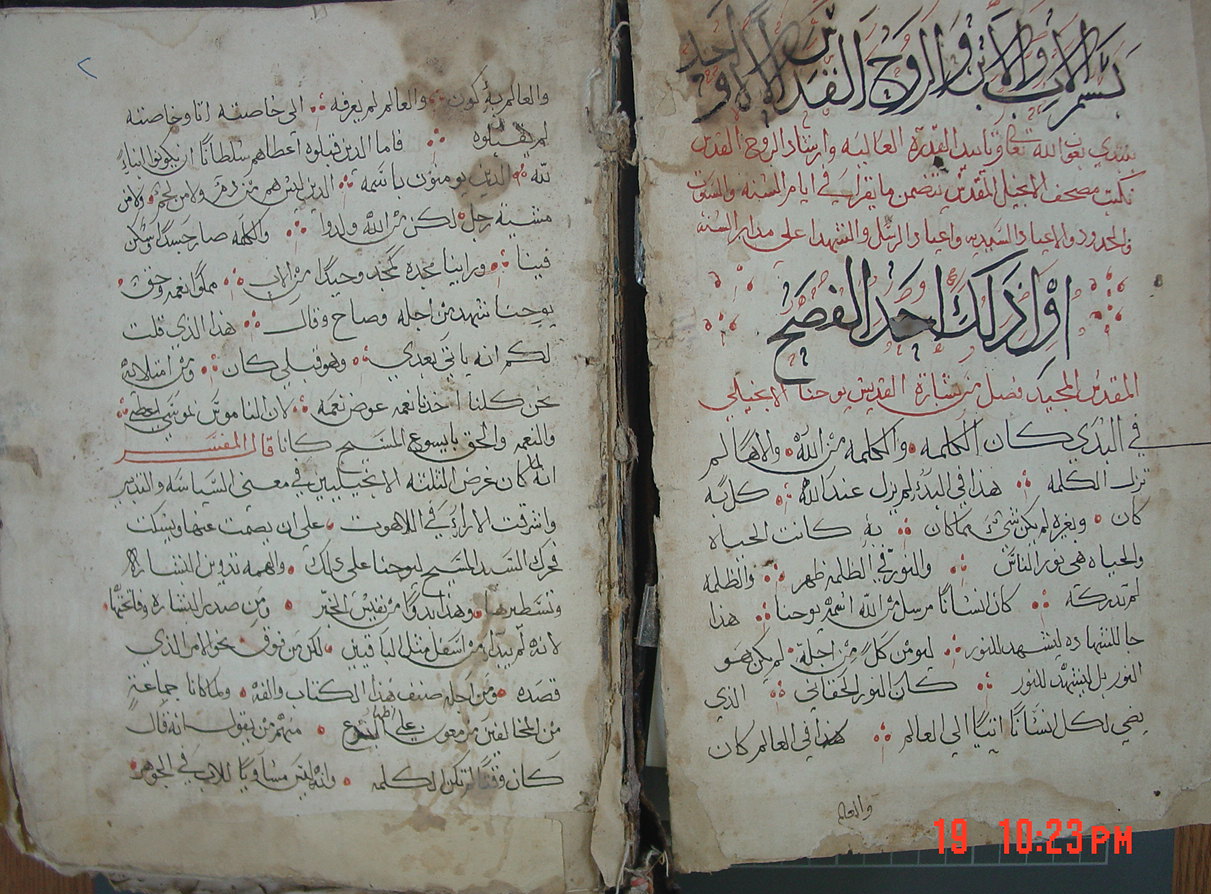 بسم الاب والابن والروح القدس الاله الواحد
نبتدي بعون الله تعالى وتاييد القدره العاليه وارشاد الروح القدس
نكتب مصحف الانجيل المقدس يتضمن ما يقرا في ايام السنه والسبوت
والحدود والاعياد والسيديه واعياد الرسل والشهدا على مدار السنة
اول ذلك احد الفصح
المقدس المجيد فصل من بشارة القديس يوحنا الانجيلي
في البدي كان الكلمه والكلمه من الله والاها لم
تزل الكلمه هدا في البدء لم يزل عند الله كل به
كان وبغيره لم يكن شي مما كان به كانت الحياه
والحياه هي نور الناس والنور في الظلمه ظهر والظلمه
لم تدركه كان انسانا مرسل من الله اسمه يوحنا هدا
جا للشهاده ليشهد للنور ليومن كل من اجله لم يكن هو
النور بل ليشهد للنور كان النور الحقاني الذي
يضي لكل انسانا اتيا الى العالم هدا في العالم كان
والعالم
والعالم به كون والعالم لم يعرفه الى خاصته اتا وخاصته
لم يقبلوه فاما الدين قبلوه اعطاهم سلطانا ان يكونوا ابناء
لله الدين يومنون باسمه الدين ليس هم من دم ولا من لحم ولا من
مشية رجل لكن من الله ولدوا والكلمه صار جسدا وسكن
فينا وراينا مجده كمجد وحيدا من الاب مملوا نعمه وحق
يوحنا شهد من اجله وصاح وقال هذا الذي قلت
لكم انه ياتي بعدي وهو قبلي كان ومن امتلائه
نحن كلنا اخذنا نعمه عوض نعمه لان الناموس بموسى اعطي
والنعمه والحق بايسوع المسيح كانا قال المفسر
انه لما كان غرض الثلثه الانجيليين في معنى السياسه والتدبير
على ان يصمت عنها ويسكت
تحرك السيد المسيح ليوحنا على ذلك والهمه تدوين البشاره
وتسطيرها وهذا بدوا من نفيس الخبر ومن صدر البشاره وفاتحتها
لانه لم يبدا من اسفل مثل الباقيين لكن من فوق نحو الامر الذي
قصده ومن اجله صنف هذا الكتاب والفه ولما كانا جماعة
من المخالفين منهم من يقول انه قال
كان وقتا لم تكن الكلمه وانه ليس مساويا للاب في الجوهر
19 10:23 PM